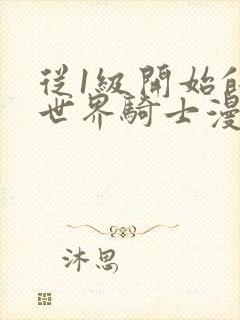 從1級開始的
世界騎士漫
沐思